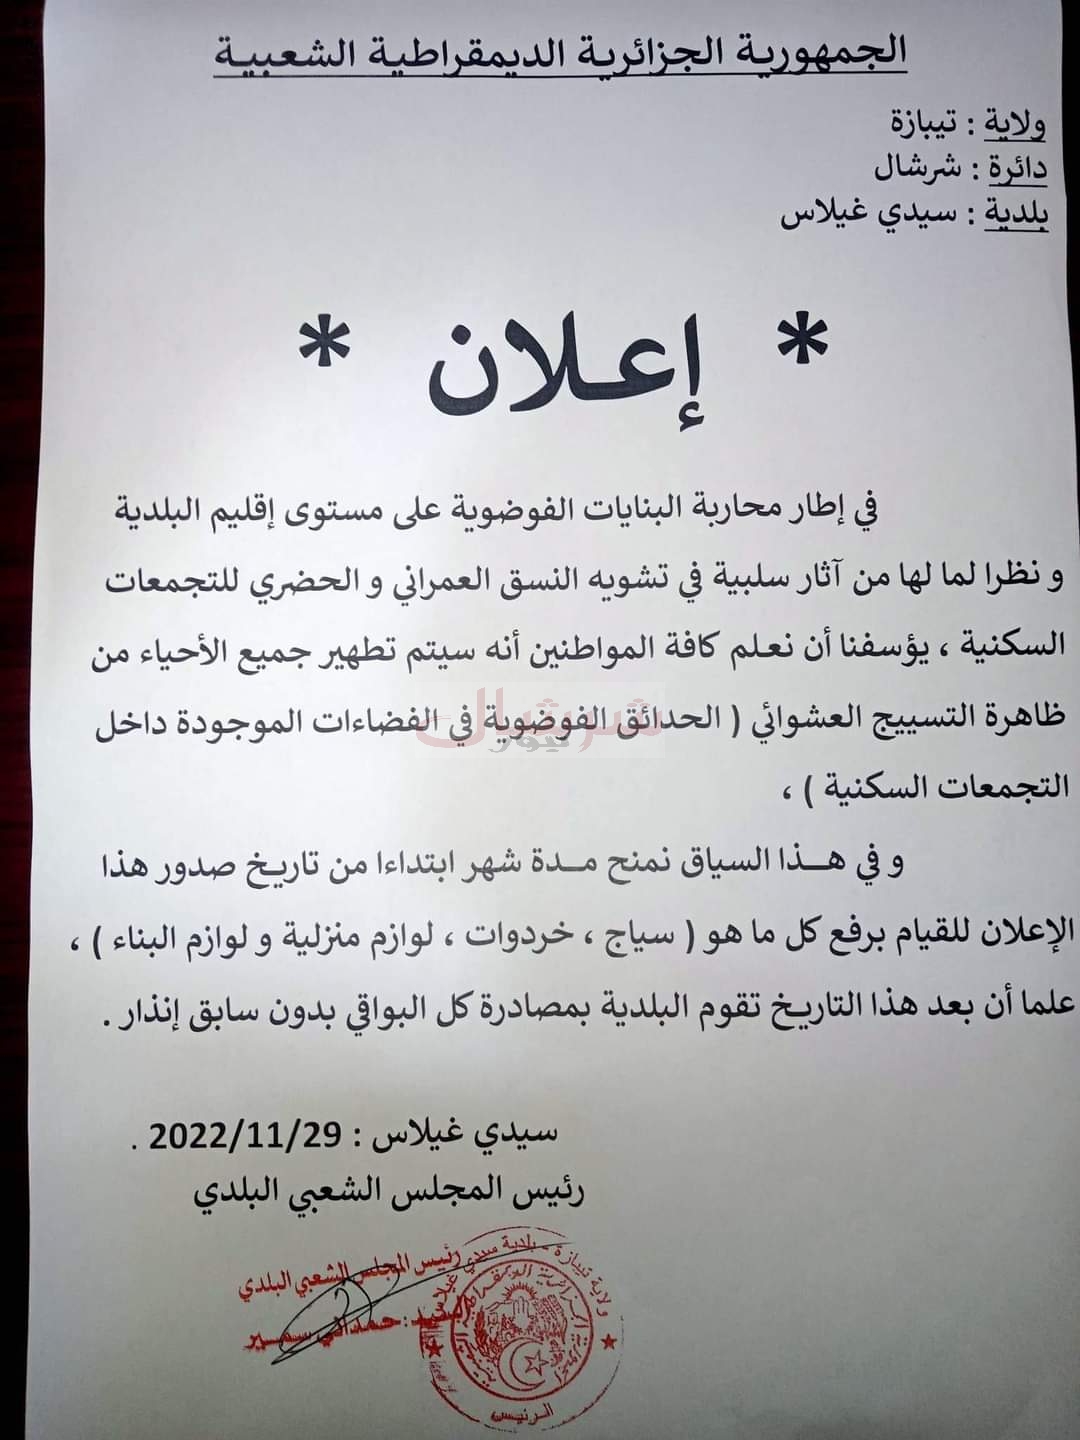 الجمهورية الجزائرية الديمقراطية الشعبية
ولاية : تيبازة
دائرة : شرشال
بلدية : سيدي غيلاس
* إعلان *
في إطار محاربة البنايات الفوضوية على مستوى إقليم البلدية
و نظرا لما لها من آثار سلبية في تشويه النسق العمراني و الحضري للتجمعات
السكنية ، يؤسفنا أن نعلم كافة المواطنين أنه سيتم تطهير جميع الأحياء من
ظاهرة التسييج العشوائي ( الحدائق الفوضوية في الفضاءات الموجودة داخل
التجمعات السكنية ) ،
شرشال
نيوز
و في هذا السياق نمنح مدة شهر ابتداءا من تاريخ صدور هذا
الإعلان للقيام برفع كل ما هو ( سياج ، خردوات ، لوازم منزلية و لوازم البناء ) ،
علما أن بعد هذا التاريخ تقوم البلدية بمصادرة كل البواقي بدون سابق إنذار .
سيدي غيلاس : 2022/11/29 .
رئيس المجلس الشعبي البلدي
رئيس المجلس الشعبي البلدي
السيد : حمداني سمير
ولاية تيبازة - بلدية سيدي غيلاس
الجمهورية الجزائرية الديمقراطية الشعبية
الرئيس